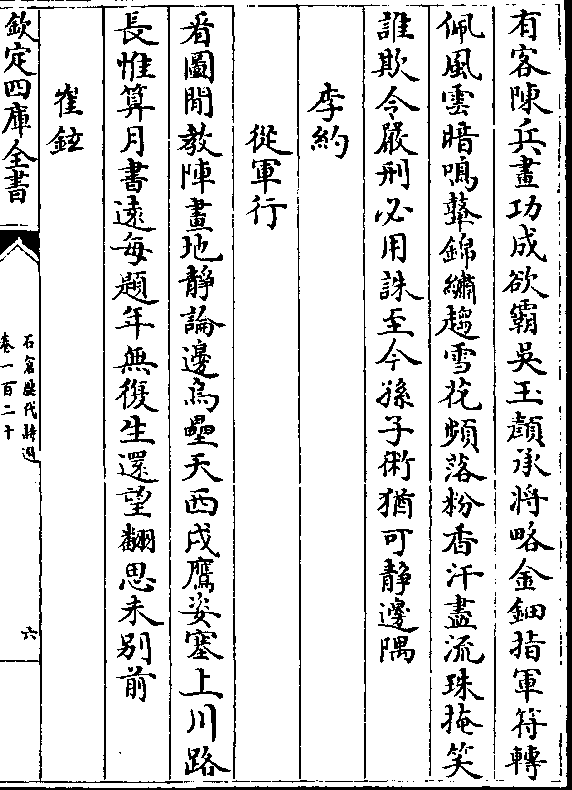 有客陳兵畫功成欲霸吳玉顔承將略金鈿指軍符轉
佩風雲暗鳴鼙錦繡趨雪花頻落粉香汗盡流珠掩笑
誰欺令嚴刑必用誅至今孫子術猶可靜邊隅
李約
從軍行
看圖閒教陣畫地靜論邊烏壘天西戍鷹姿塞上川路
長惟算月書遠每題年無復生還望翻思未别前
崔鉉
欽定四庫全書
石倉歴代詩選
卷一百二十
六